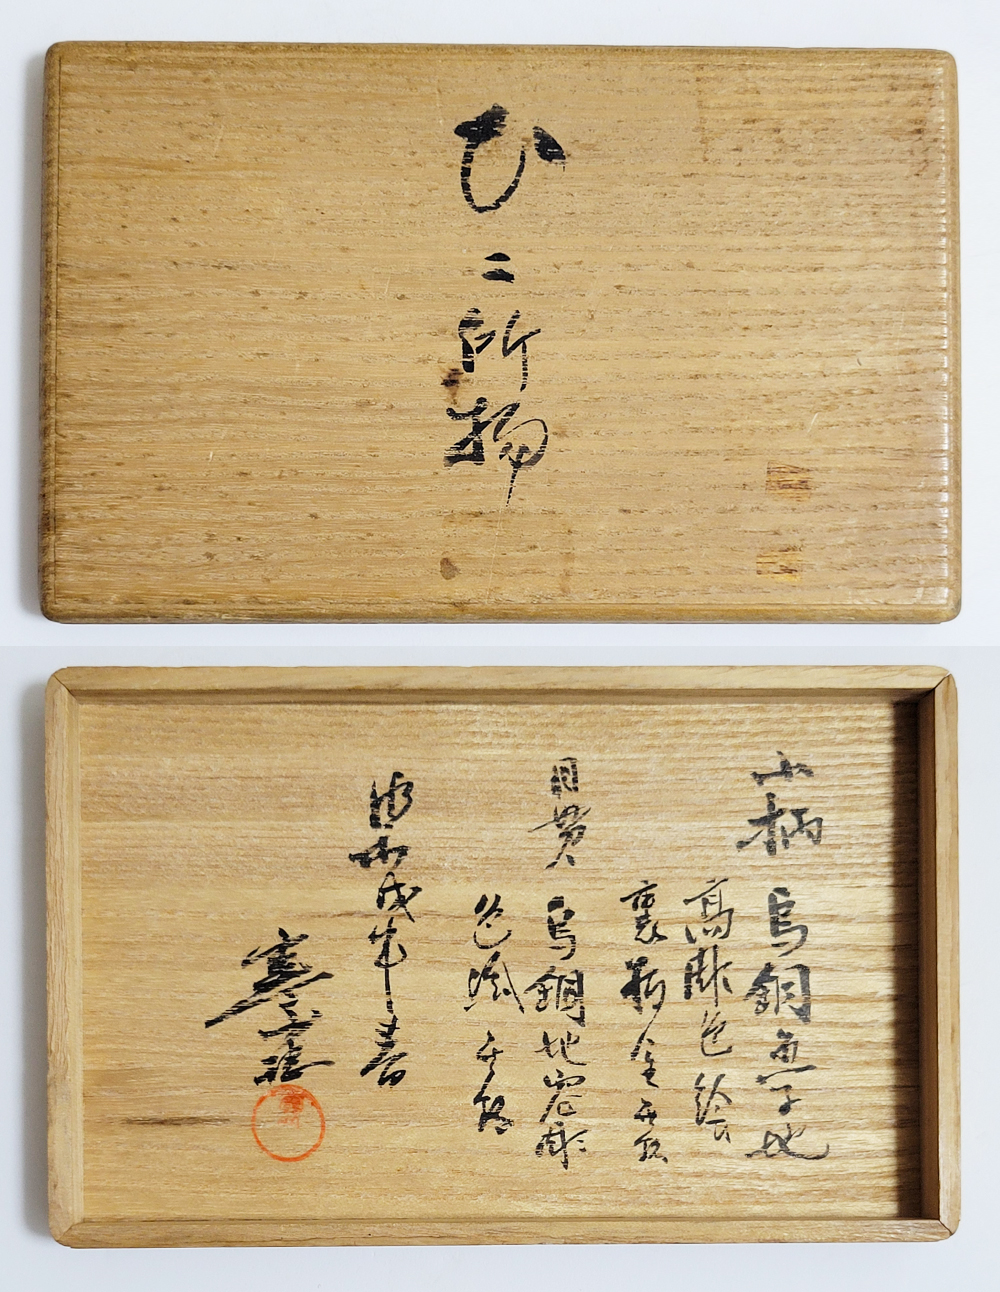 ひ
二所物
小柄 烏銅魚子地
高彫色絵
裏 金無銘
目貫 烏銅地容彫
色絵 無銘
昭和戌年春
寒山誌